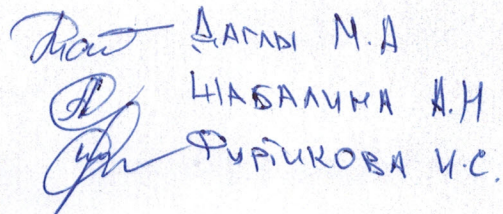 Даглы М.А
Шабалина А.Н
Фуртикова И.С.